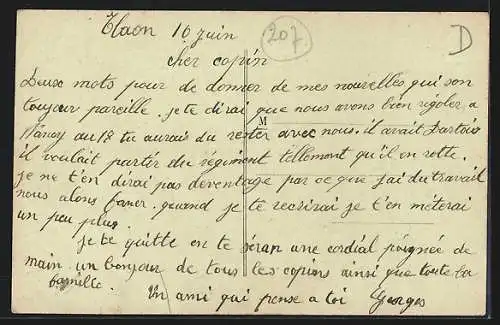 Thaon 16 juin
207
D
cher copin
Deuse mots pour de donner de mes nouvelles qui son
toujour pareille. je te dirai que nous avons bien rigoler a
M
Nancy au 18 tu aurais du rester avec nous. il avait Dartois
il voulait partir du régiment tellement qu'il en
je ne t'en dirai pas deventage par ce que j'ai du travail
nous alons faner. quand je te recrirai je t'en meterai
un peu plus.
je te quitte en te séran une cordial poignée de
main un bonjour de tous les copins ainsi que toute ta
famille.
Un ami qui pense a toi Georges